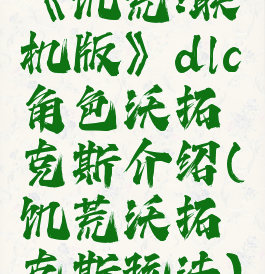 《饥荒:联
机版》dlc
角色沃拓
克斯介绍(
饥荒沃拓
克斯玩法)